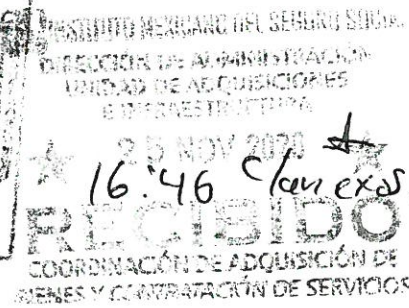 INSTITUTO MEXICANO DEL SEGURO SOCIAL
DIRECCIÓN DE ADMINISTRACIÓN
UNIDAD DE ADQUISICIONES
E INFRAESTRUCTURA
25 NOV 2020
16:46 c/anexos
RECIBIDO
COORDINACIÓN DE ADQUISICIÓN DE
BIENES Y CONTRATACIÓN DE SERVICIOS